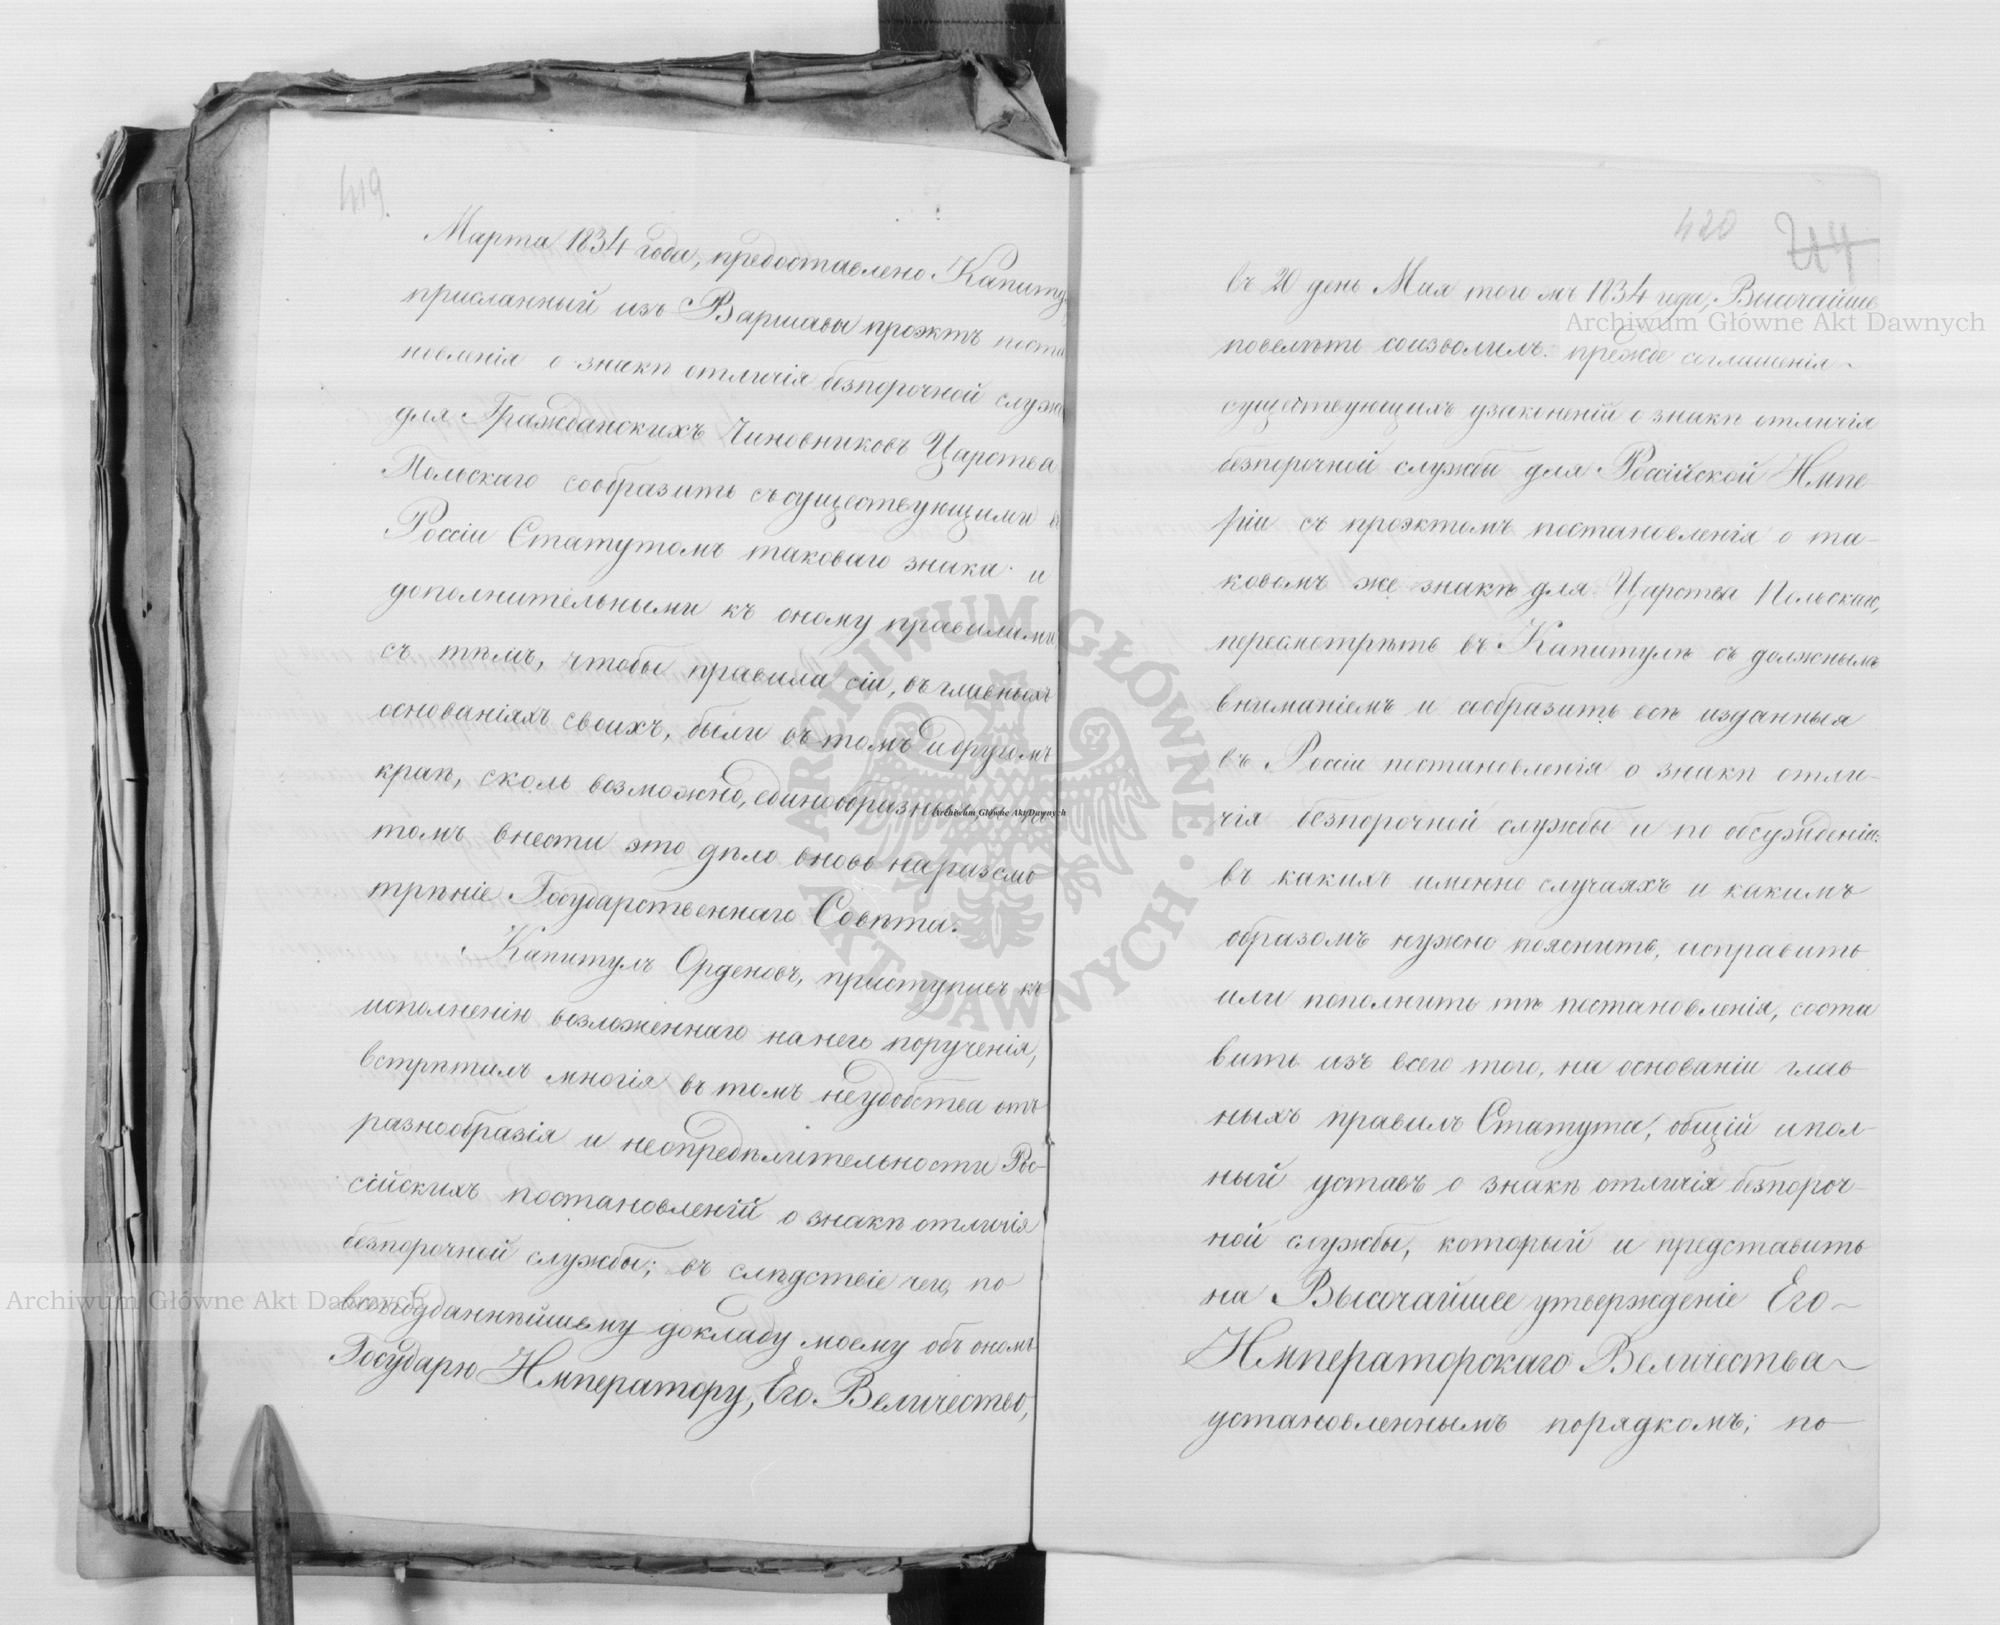 419.
Марта 1834 года, предоставлено Капиту
присланный изъ Варшавы проэктъ поста
новленія о знакѣ отличія безпорочной служ
для Гражданскихъ Чиновниковъ Царства
Польскаго сообразить съ существующими въ
Россіи Статутомъ таковаго знака и
дополнительными къ оному правилами
съ тѣмъ, чтобы правила сіи, въ главныхъ
основаніяхъ своихъ, были въ томъ и другомъ
краѣ, сколь возможно, единообразны, и по
томъ внести это дѣло вновь на разсмо
трѣніе Государственнаго Совѣта.
Капитулъ Орденовъ, приступивъ къ
исполненію возложеннаго на него порученія,
встрѣтилъ многія въ томъ неудобства отъ
разнообразія и неопредѣлительности Рос-
сійскихъ постановленій о знакѣ отличія
безпорочной службы; въ слѣдствіе чего, по
всеподданнѣйшему докладу моему объ ономъ
Государю Императору, Его Величество,
420 214
въ 20 день Мая того жъ 1834 года, Высочайше
повелѣть соизволилъ: прежде соглашенія
существующихъ узаконеній о знакѣ отличія
безпорочной службы для Россійской Импе
ріи съ проэктомъ постановленія о та-
ковомъ же знакѣ для Царства Польскаго,
пересмотрѣть въ Капитулѣ съ должнымъ
вниманіемъ и сообразить всѣ изданныя
въ Россіи постановленія о знакѣ отли-
чія безпорочной службы и по обсужденіи:
въ какихъ именно случаяхъ и какимъ
образомъ нужно пояснить, исправить
или пополнить тѣ постановленія, соста
вить изъ всего того, на основаніи глав
ныхъ правилъ Статута, общій и пол-
ный уставъ о знакѣ отличія безпороч-
ной службы, который и представить
на Высочайшее утвержденіе Его
Императорскаго Величества
установленнымъ порядкомъ; по
Archiwum Główne Akt Dawnych
Archiwum Główne Akt Dawnych
Archiwum Główne Akt Dawnych
ARCHIWUM GŁÓWNE AKT DAWNYCH